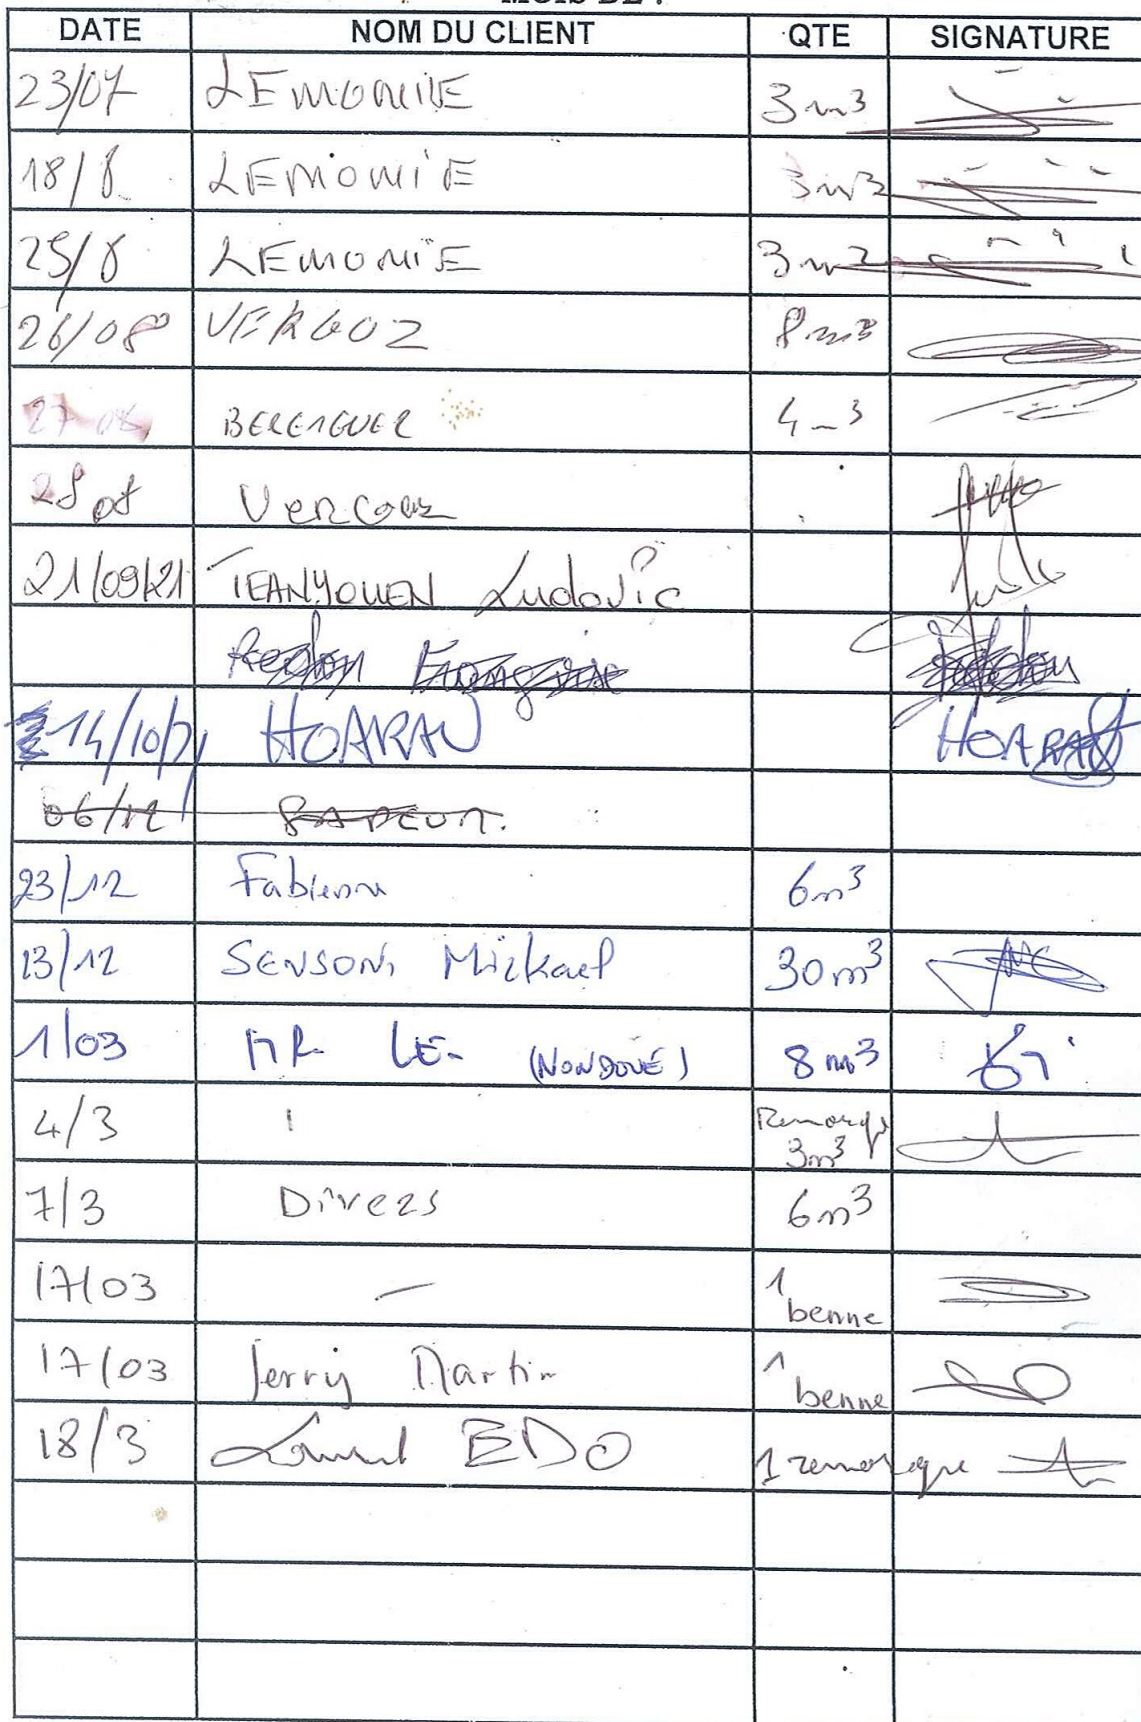 MOIS DE :
DATE NOM DU CLIENT QTE SIGNATURE
23/07 LEMONIE 3 m3
18/8 LEMONIE 3m3
25/8 LEMONIE 3m3
26/08 VERGOZ 8m3
27 08 BERENGUER 4 m3
28 08 Vergoz
21/09/21 TEANYOUEN Ludovic
14/10/21 HOARAU HOARAU
06/12
23/12 Fabienne 6m3
13/12 SENSON Mickael 30m3
1/03 MR LE- (NONDOUÉ) 8 m3
4/3 Remorque
3m3
7/3 Divers 6m3
17/03 — 1
benne
17/03 Jerry Martin 1
benne
18/3 EDO 1 remorque